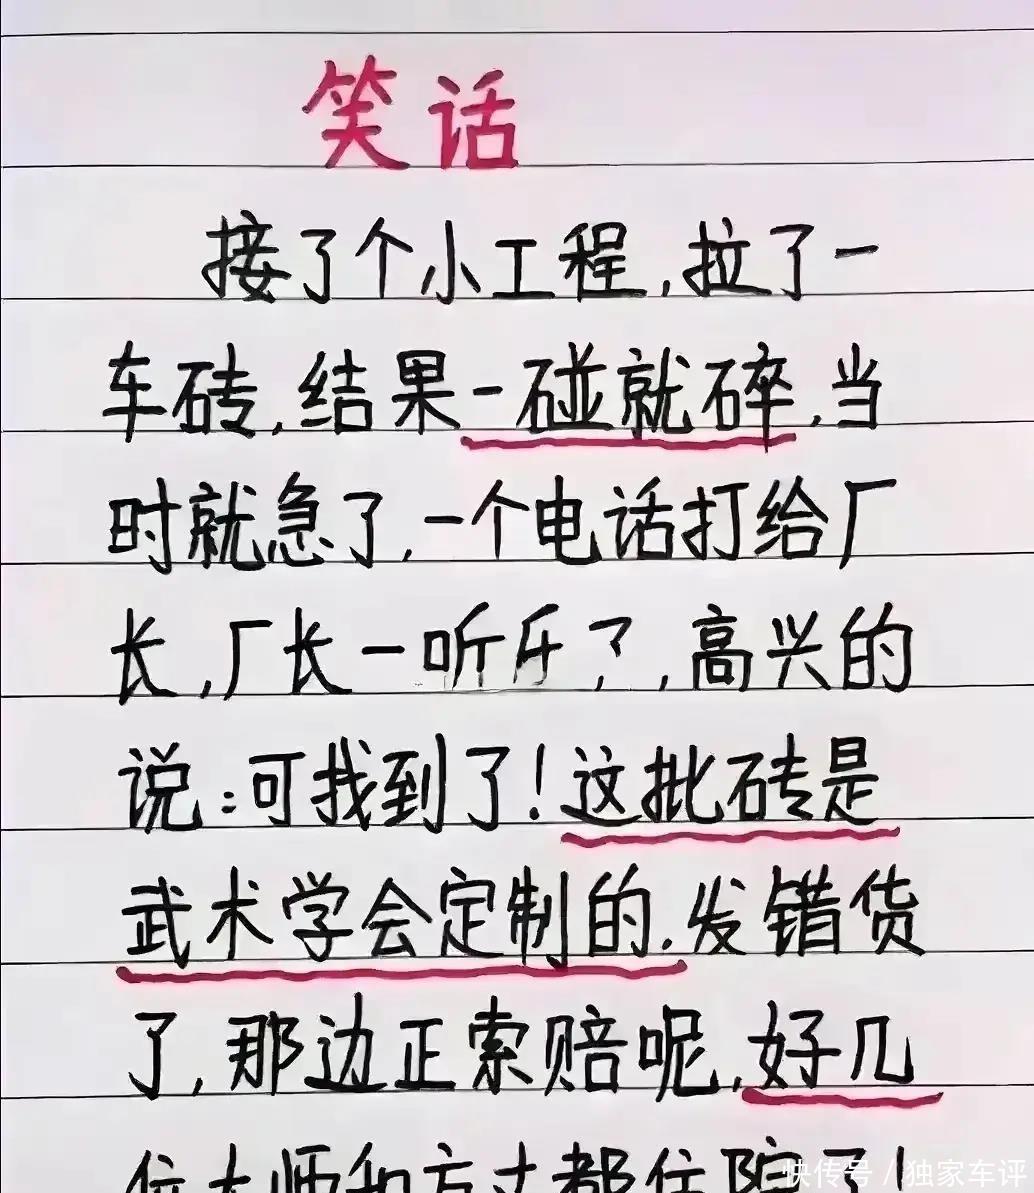 笑话
接了个小工程,拉了一
车砖,结果一碰就碎,当
时就急了,一个电话打给厂
长,厂长一听乐了,高兴的
说:可找到了!这批砖是
武术学会定制的.发错货
了,那边正索赔呢,好几
位大师和方丈都住院了!
快传号/独家车评